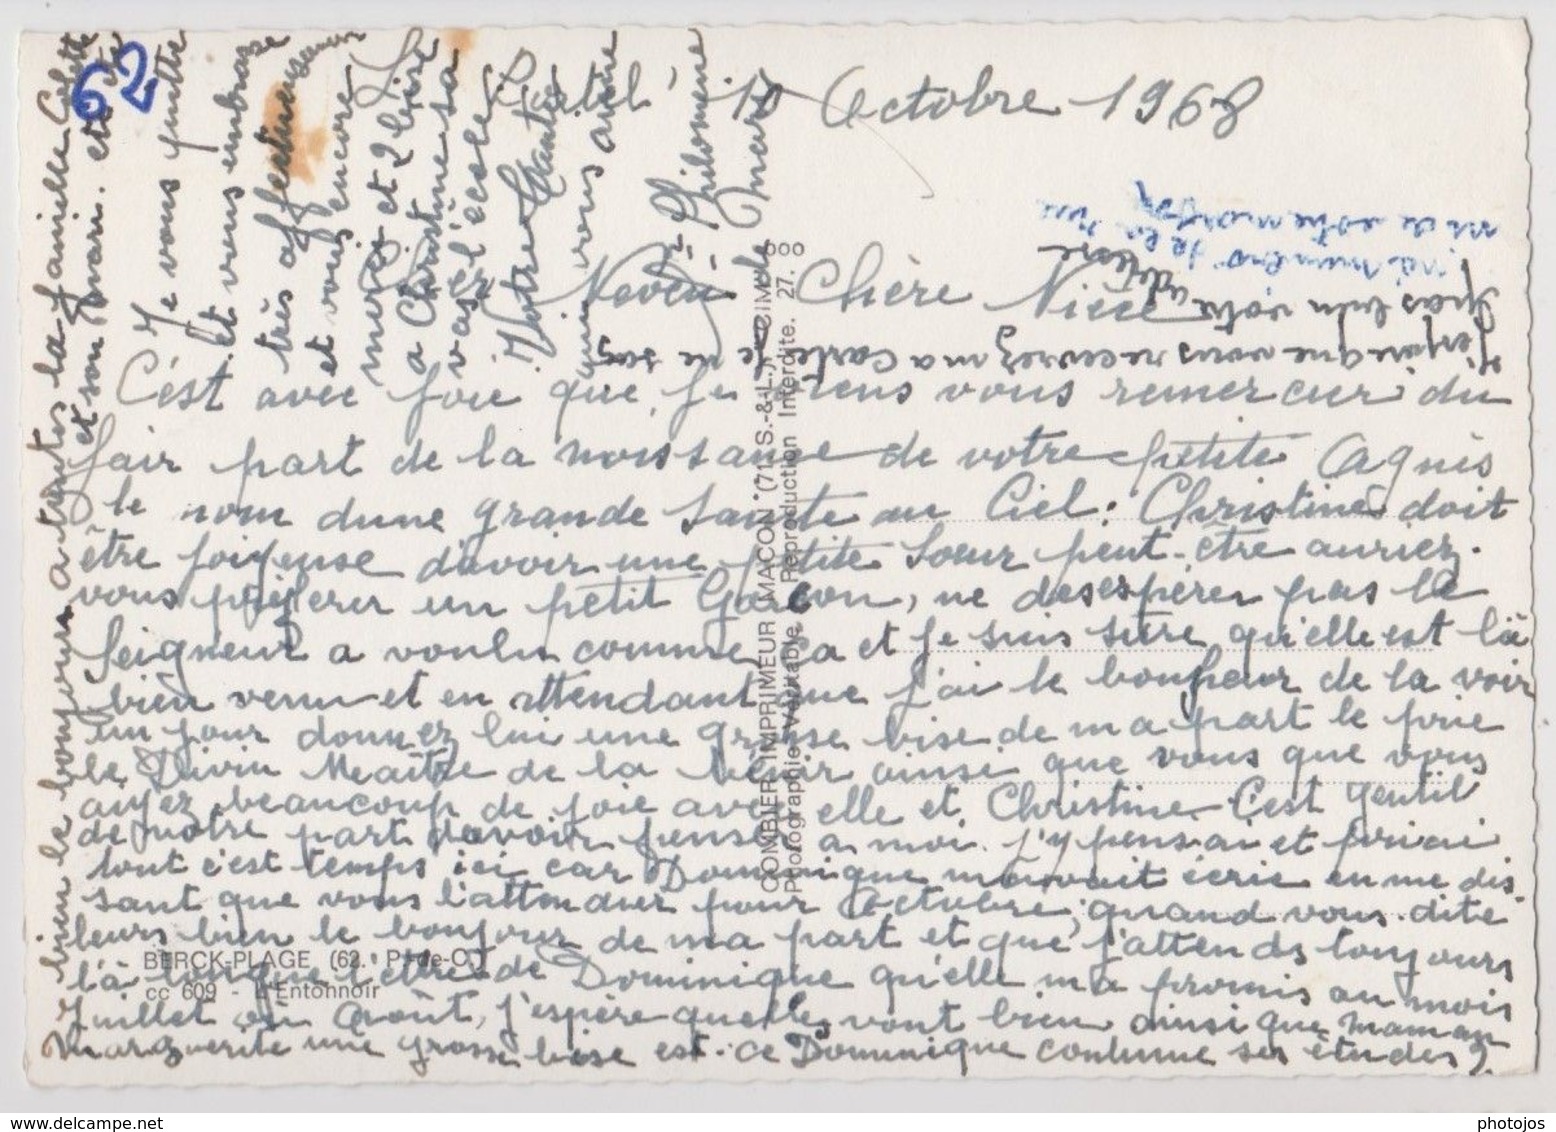 62
10 Octobre 1968
Cher Neveu Chère Nièce
C'est avec joie que je viens vous remercier du
fair part de la naissance de votre petite Agnès
le nom dune grande Sainte au Ciel. Christine doit
être joiyeuse d'avoir une petite Sœur peut-être auriez-
vous préferer un petit Garçon, ne desespérer pas le
Seigneur a voulu comme ça et je suis sûre qu'elle est là
bien venu et en attendant que j'ai le bonheur de la voir
un jour donnez lui une grosse bise de ma part le prie
le Divin Meaître de la bénir ainsi que vous que vous
ayez beaucoup de joie avec elle et Christine. C'est gentil
de notre part davoir penser a moi. J'y pensai et priai
tout c'est temps ici car Dominique m'avait écris en me dis
sant que vous l'attendier pour Octobre, quand vous dite
leurs bien le bonjour de ma part et que j'attends toujours
là longue lettre de Dominique qu'elle ma promis au mois
Juillet ou Août, j'espère quelles vont bien ainsi que maman
Marguerite une grosse bise est-ce Dominique continue ses études ?
bien le bonjours a toutes la famielle Colette
et son Mari. etc
Je vous quitte
et vous embrasse
très affectueusement
et vous encore
merci et 2 bise
a Christine sa
vas l'école
Votre Tante
qui vous aime
Philomène
J'espère que vous recevrez ma carte je ne sais
pas bien votre adresse
ni numéro de la rue
ni de votre maison
COMBIER IMPRIMEUR MACON (71. S.-&-L.) CIM
Photographie Véritable. Reproduction Interdite. 27.
BERCK-PLAGE (62. P.-de-C.)
cc 609 - L'Entonnoir
www.delcampe.net
photojos